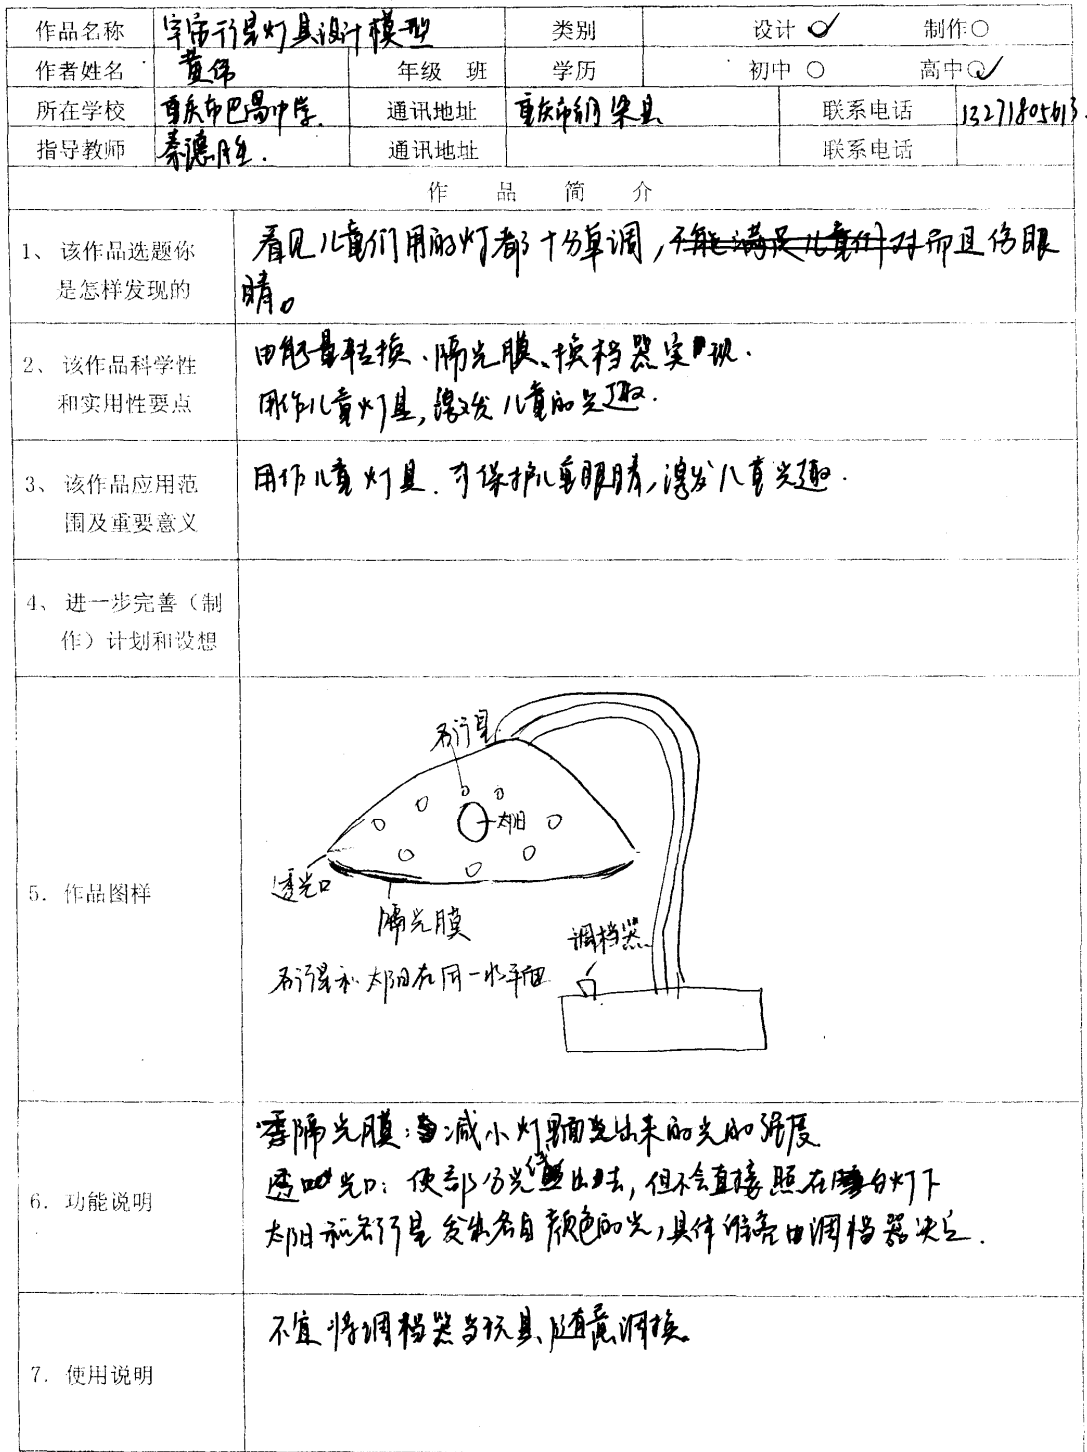 作品名称 宇宙行星灯具设计模型 类别 设计 ○✓ 制作○
作者姓名 黄伟 年级 班 学历 初中 ○ 高中○✓
所在学校 重庆市巴蜀中学. 通讯地址 重庆市铜梁县 联系电话 13271805613.
指导教师 秦德胜. 通讯地址 联系电话
作 品 简 介
1、 该作品选题你
是怎样发现的
看见儿童们用的灯都十分单调,不能满足儿童们对而且伤眼
睛。
2、 该作品科学性
和实用性要点
由能量转换、隔光膜、换档器实现.
用作儿童灯具,激发儿童的兴趣.
3、 该作品应用范
围及重要意义
用作儿童灯具.可保护儿童眼睛,激发儿童兴趣.
4、 进一步完善(制
作)计划和设想
5. 作品图样
各行星
太阳
透光口
隔光膜
调档器
各行星和太阳在同一水平面
6. 功能说明
隔光膜:减小灯里面发出来的光的强度
透光口:使部分光传出去,但不会直接照在台灯下
太阳和各行星发出各自颜色的光,具体由调档器决定.
7. 使用说明
不宜将调档器当玩具、随意调换。